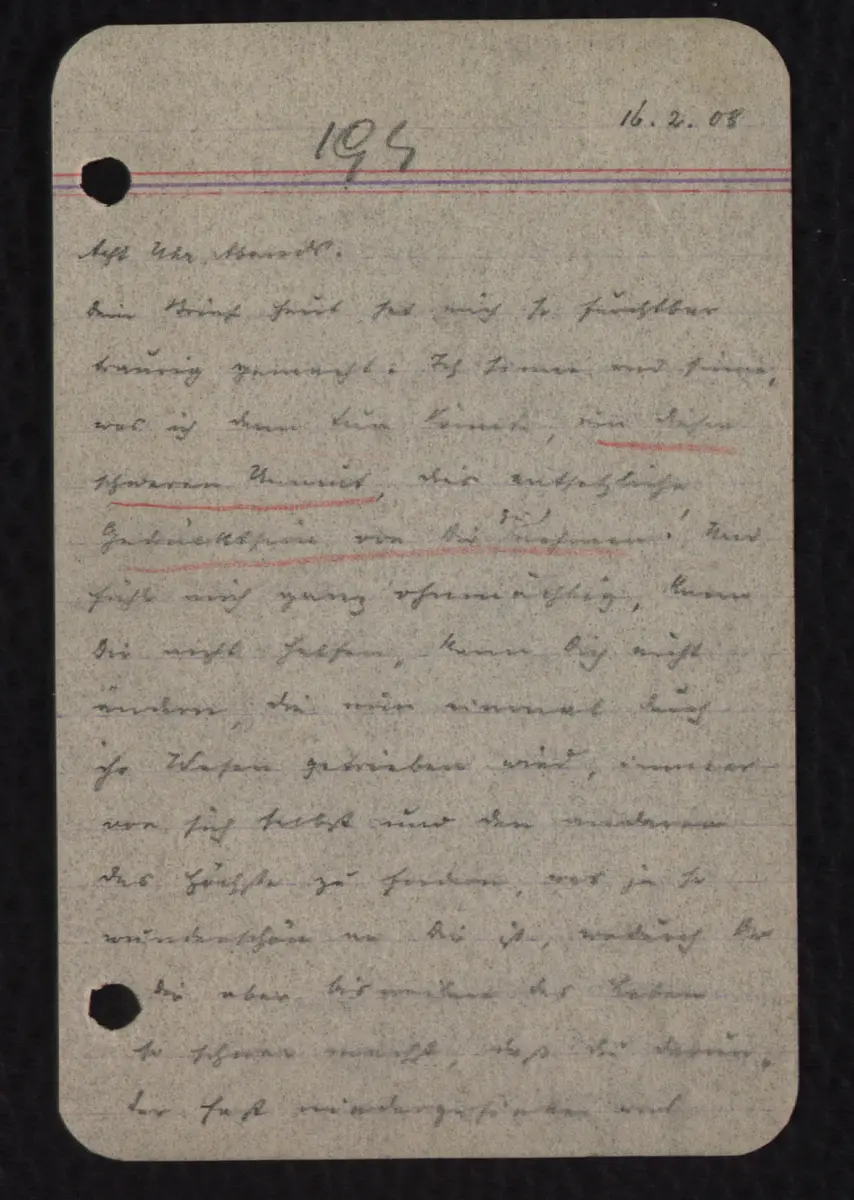 16. 2. 08
194
Acht Uhr Abends.
Dein Brief heut hat mich so furchtbar
traurig gemacht. Ich sinne und sinne,
was ich denn tun könnte, um diesen
schweren Unmut, dies entsetzliche
Gedrücktsein von Dir zu nehmen! Und
fühle mich ganz ohnmächtig, kann
Dir nicht helfen, kann Dich nicht
ändern, die nun einmal durch
ihr Wesen getrieben wird, immer
von sich selbst und den anderen
das Höchste zu fordern, was ja so
wunderschön an Dir ist, wodurch Du
Dir aber bisweilen das Leben
so schwer machst, daß Du darun-
ter fast niederzusinken